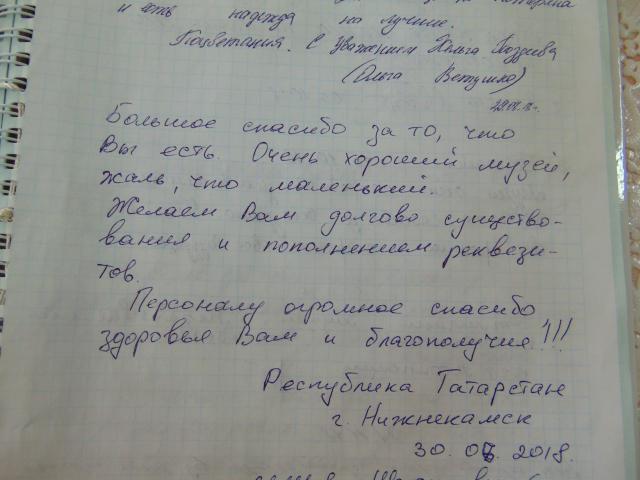 и есть надежда на лучшее.
Процветания. С уважением Ольга
(Ольга Ветушко)
Большое спасибо за то, что
Вы есть. Очень хороший музей,
жаль, что маленький.
Желаем Вам долгово существо-
вания и пополнением реквези-
тов.
Персоналу огромное спасибо
здоровья Вам и благополучия!!!
Республика Татарстан
г. Нижнекамск
30. 2018.